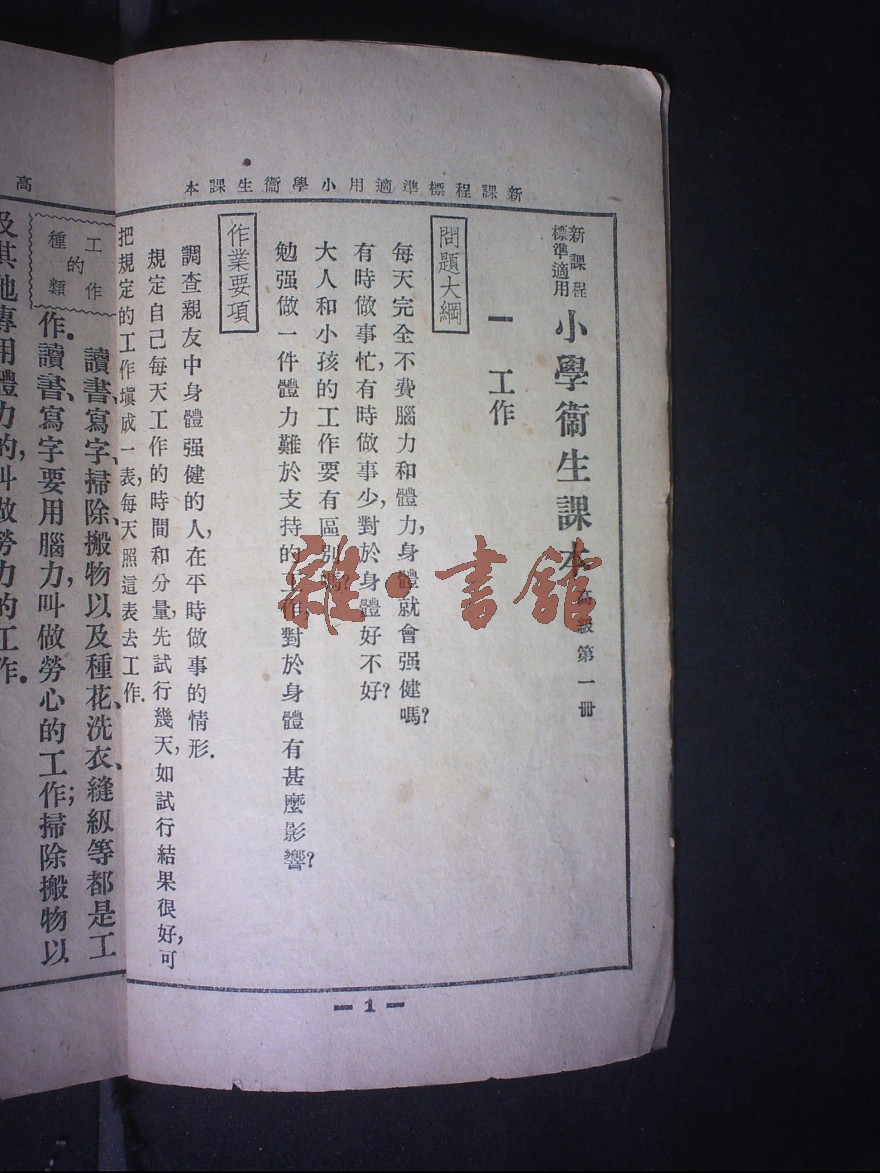 新課程標準適用小學衞生課本
新課程
標準適用
小學衞生課本
高級第一冊
一 工作
問題大綱
每天完全不費腦力和體力,身體就會强健嗎?
有時做事忙,有時做事少,對於身體好不好?
大人和小孩的工作要有區別嗎?
勉强做一件體力難於支持的工作對於身體有甚麼影響?
作業要項
調查親友中身體强健的人,在平時做事的情形.
規定自己每天工作的時間和分量,先試行幾天,如試行結果很好,可
把規定的工作塡成一表,每天照這表去工作.
— 1 —
高
工作
的
種類
讀書、寫字、掃除、搬物以及種花、洗衣、縫級等都是工
作.讀書、寫字要用腦力,叫做勞心的工作;掃除搬物以
及其他專用體力的,叫做勞力的工作.
雜·書館